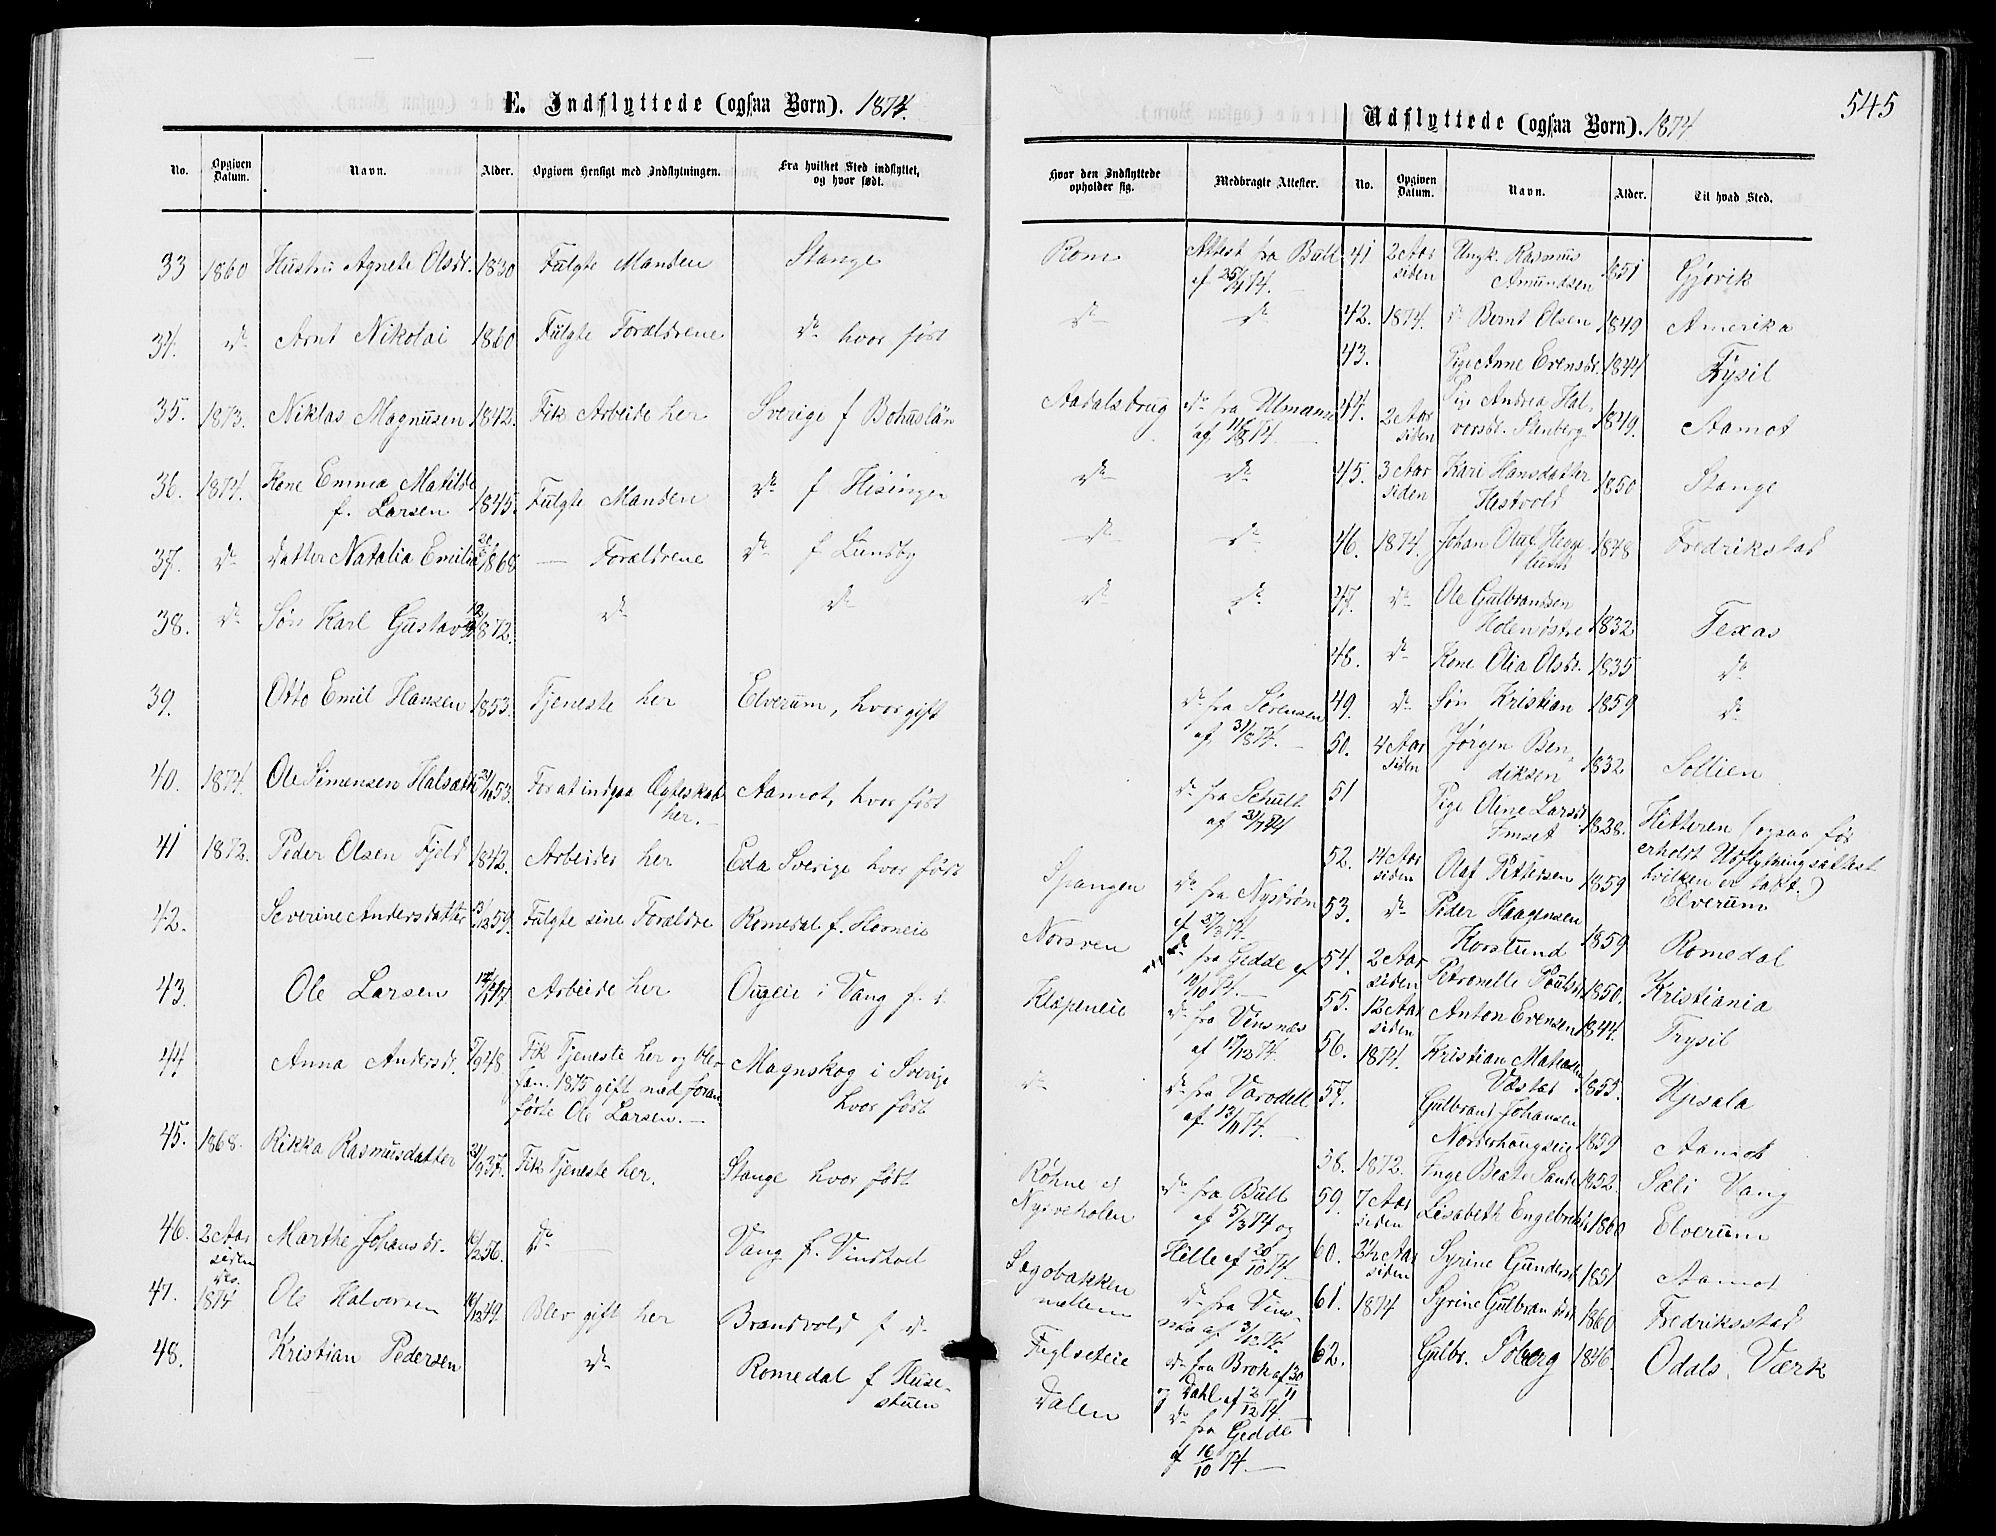 E. Indflyttede (ogsaa Børn). 1874.
No. Opgiven Datum. Navn. Alder. Opgiven Hensigt med Indflytningen. Fra hvilket Sted indflyttet, og hvor født.
33 1860 Hustru Agnete Olsdr. 1830 Fulgte Manden Stange
34. do Arnt Nikolai 1860 Fulgte Forældrene do hvor født
35. 1873. Niklas Magnusen 1842. Fik Arbeide her Sverige f Bohuslän
36. 1874. Kone Emma Matilde
f. Larsen 1845. Fulgte Manden do f Hisingen
37. do datter Natalia Emilie 1868 — Forældrene do f Lundby
38. do Søn Karl Gustav 1872. do do
39. Otto Emil Hansen 1853. Tjeneste her Elverum, hvor gift
40. 1874. Ole Simensen Halsæth 53. For at indgaa Ægteskab
her. — Aamot, hvor født
41 1872. Peder Olsen Fjeld 1842. Arbeider her Eda Sverige hvor født
42. Severine Andersdatter 59. Fulgte sine Forældre Romedal f.
43. Ole Larsen 47. Arbeide her i Vang f. d.
44 Anna Andersdr. 48 Fik Tjeneste her og blev
Jan. 1875 gift med foran-
førte Ole Larsen. — Magnskog i Sverige
hvor født
45. 1868. Rikka Rasmusdatter 37. Fik Tjeneste her. Stange hvor født
46. 2 Aar
siden Marthe Johansdr. 56. do — Vang f.
47. 1874 Ole Halvorsen 49. Blev gift her Brandvold f do
48. Kristian Pedersen do Romedal f Huse-
stuen
545
Udflyttede (ogsaa Børn). 1874
Hvor den Indflyttede opholder sig. Medbragte Attester. No. Opgiven Datum. Navn. Alder. Til hvad Sted.
Rom Attest fra Bull
af 25/4 74. —
do do
Aadalsbrug do fra Ulmann
af 11/8 74. —
do do
do do
do do
do fra Sørensen
af 31/8 74. —
do fra Schult
af
Spangen do fra Nystrøm
af
Norsven do fra Gedde af
10/10 74. —
Klæpeneie do fra Vinsnæs
af 17/12 74.
do do fra Varodell
af 13/11 74. —
Røhne og
Nysveholen do fra Bull
af 5/3 74 og
Hille af 20/10 74. —
Sagobakken
mellem do fra Vins-
næs af 3/12 74.
Fuglseteie do fra Brok af 30/11
og Dahl af 2/12 74.
Dalen do fra Gedde
af 16/10 74. —
41 2 Aar
siden Ungk. Rasmus
Amundsen 1851 Gjøvik
42. 1874. do Bernt Olsen 1849 Amerika
43. Pige Anne Evensdr. 1844 Trysil
44. 2 Aar
siden Pige Andrea Hal-
vorsdr. Stenberg 1849. Aamot
45. 3 Aar
siden Kari Hansdatter
Hestvold 1850 Stange
46. 1874. Johan Oluf Hege
lund 1848 Fredrikstad
47. do Ole Gulbrandsen
Holenøstre 1832 Texas
48. do Kone Olia Olsdr. 1835 do
49. do Søn Kristian 1859 do
50. 4 Aar
siden Jørgen Ben-
diksen 1832 Sollien
51 Pige Oline Larsdr
Imset 1828. Hitteren (ogsaa før
erholdt Udflytningsattest
hvilken er tabt.)
52. 14 Aar
siden Olaf Pettersen 1859 Elverum
53. do Peder Haagensen
Korslund 1859 Romedal
54. 2 Aar
siden Petronelle Paulsdr 1850. Kristiania
55. 12 Aar
siden Anton Evensen 1844. Trysil
56. 1874. Kristian Mathiesen
1855. Upsala
57. Gulbrand Johansen
Norderhaugseie 1859 Aamot
58. 1872. Inge Beate Sande 1852. Sæli Vang
59. 7 Aar
siden Lisabeth Engebretsdr 1860 Elverum
60. 2½ Aar
siden Syrine Gundersdr 1851 Aamot
61. 1874 Syrine Gulbrandsdr 1860 Fredriksstad
62. Gulbr. Soberg 1846. Odals. Værk